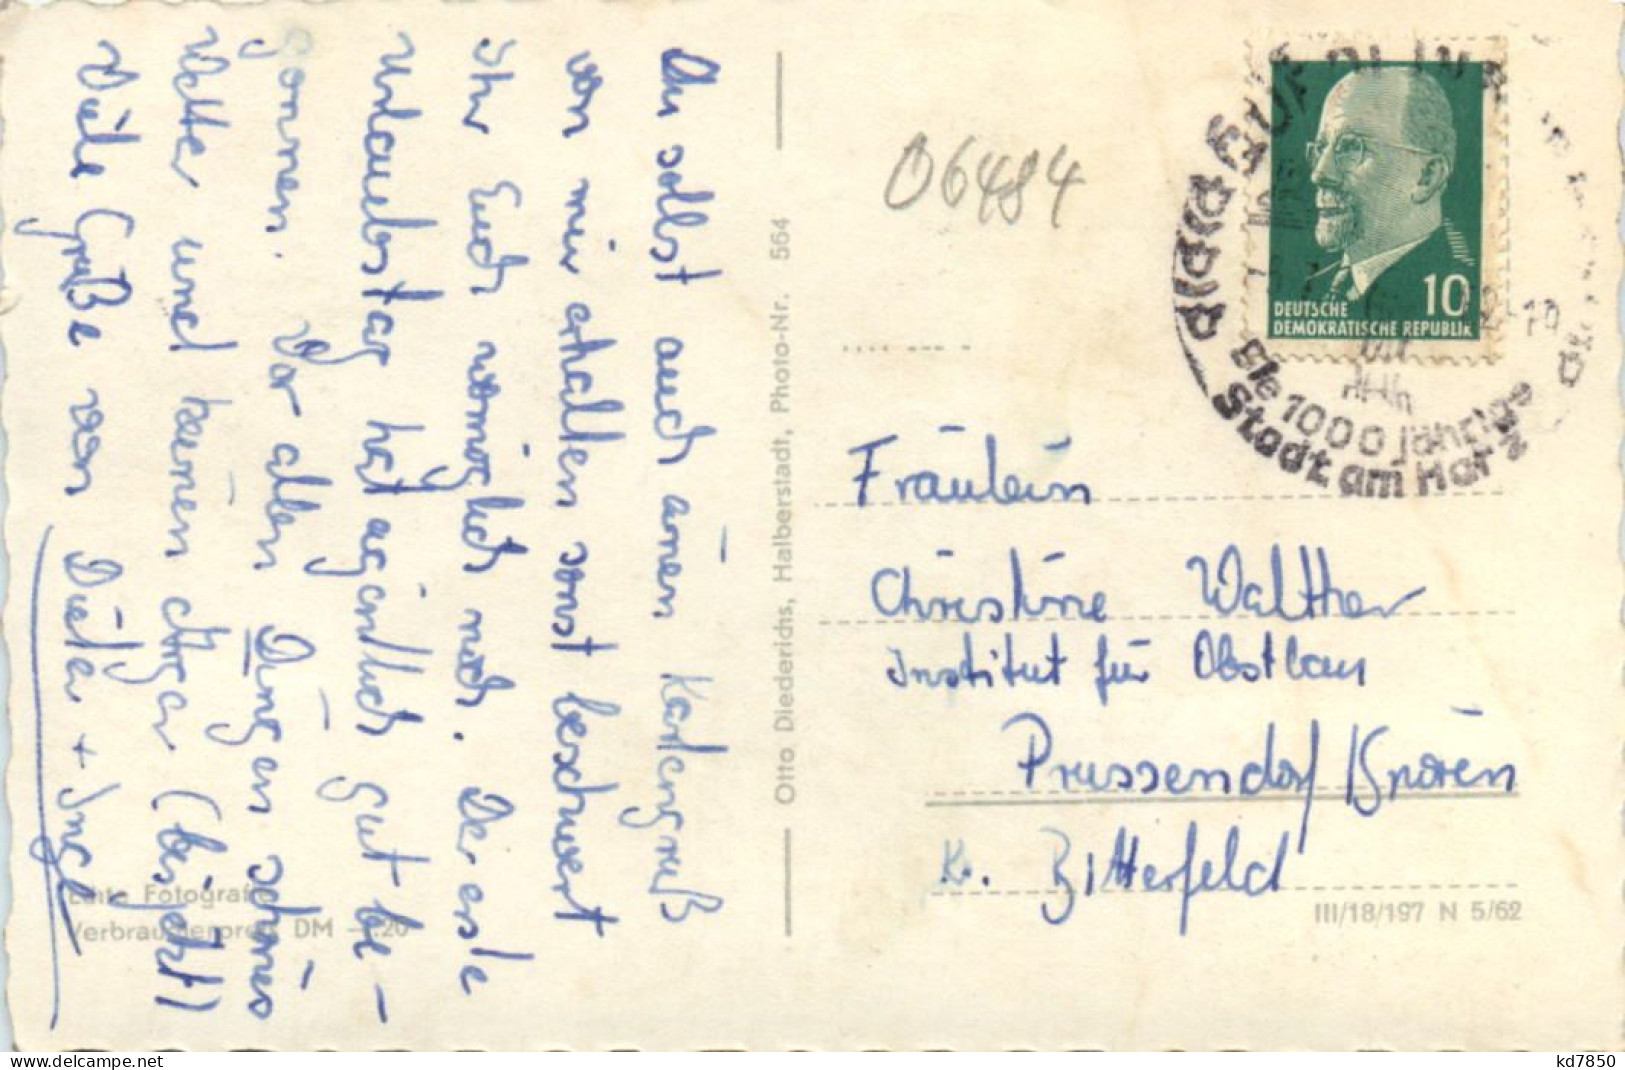 Du sollst auch einen Kartengruß
von mir erhalten sonst beschwert
ihr Euch womöglich noch. Der erste
Urlaubstag hat eigentlich gut be-
gonnen. Vor allen Dingen schönes
Wetter und keinen Ärger (bis jetzt)
Viele Grüße von Dieter + Inge
Echte Fotografie
Verbraucherpreis DM -.20
Otto Diederichs, Halberstadt, Photo-Nr. 564
06484
10
DEUTSCHE
DEMOKRATISCHE REPUBLIK
Die 1000 jährige
Stadt am Harz
Fräulein
Christine Walther
Institut für Obstbau
Prussendorf / Spören
K. Bitterfeld
III/18/197 N 5/62
www.delcampe.net
kd7850